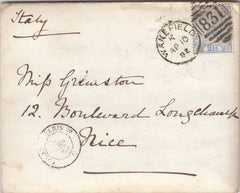 Italy
WAKEFIELD
K
AP 10
82
831
Miss Grimston
12. Boulevard Longchamp
Nice
PARIS